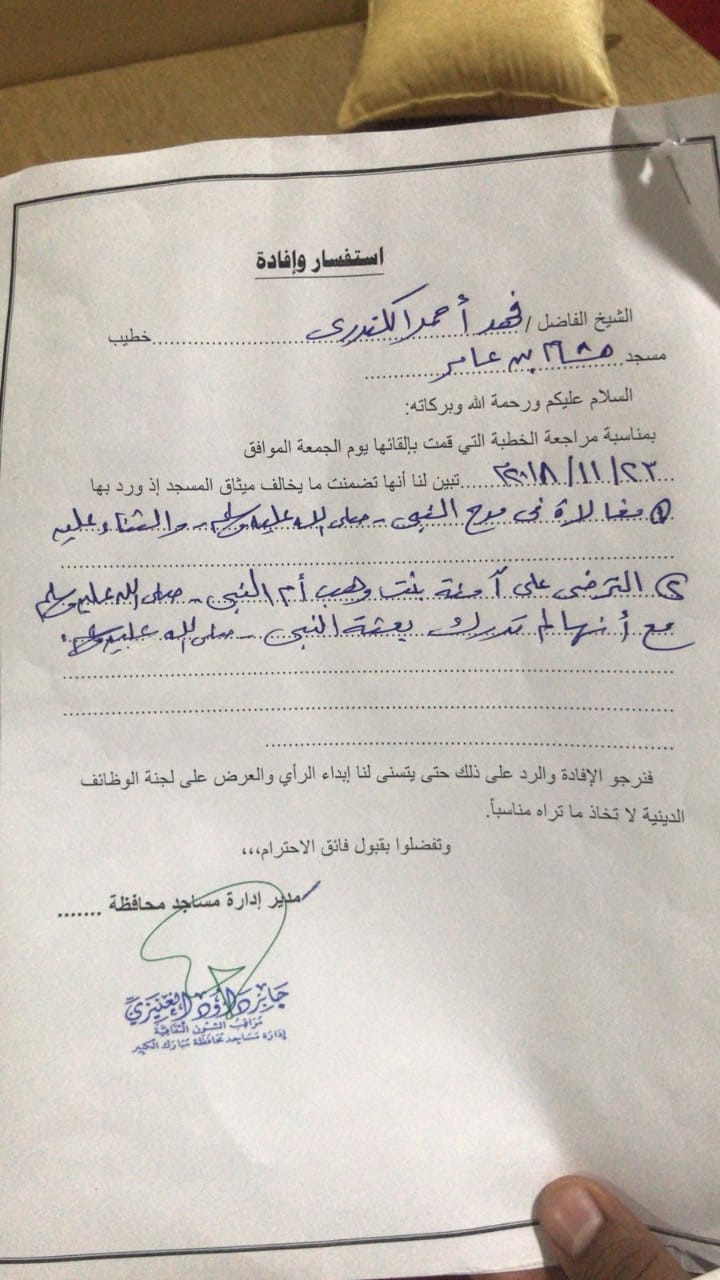 استفسار وإفادة
الشيخ الفاضل / فهد أحمد الكندري خطيب
مسجد هشام بن عامر
السلام عليكم ورحمة الله وبركاته:
بمناسبة مراجعة الخطبة التي قمت بإلقائها يوم الجمعة الموافق
٢٣/١١/٢٠١٨م تبين لنا أنها تضمنت ما يخالف ميثاق المسجد إذ ورد بها
١ مغالاة في مدح النبي - صلى الله عليه وسلم - والثناء عليه
٢ الترضى على آمنة بنت وهب أم النبي - صلى الله عليه وسلم
مع أنها لم تدرك بعثة النبي - صلى الله عليه وسلم.
فنرجو الإفادة والرد على ذلك حتى يتسنى لنا إبداء الرأي والعرض على لجنة الوظائف
الدينية لا تخاذ ما تراه مناسباً.
وتفضلوا بقبول فائق الاحترام،،،
مدير إدارة مساجد محافظة .......
العنيزي
مراقب الشئون الثقافية
إدارة مساجد محافظة مبارك الكبير